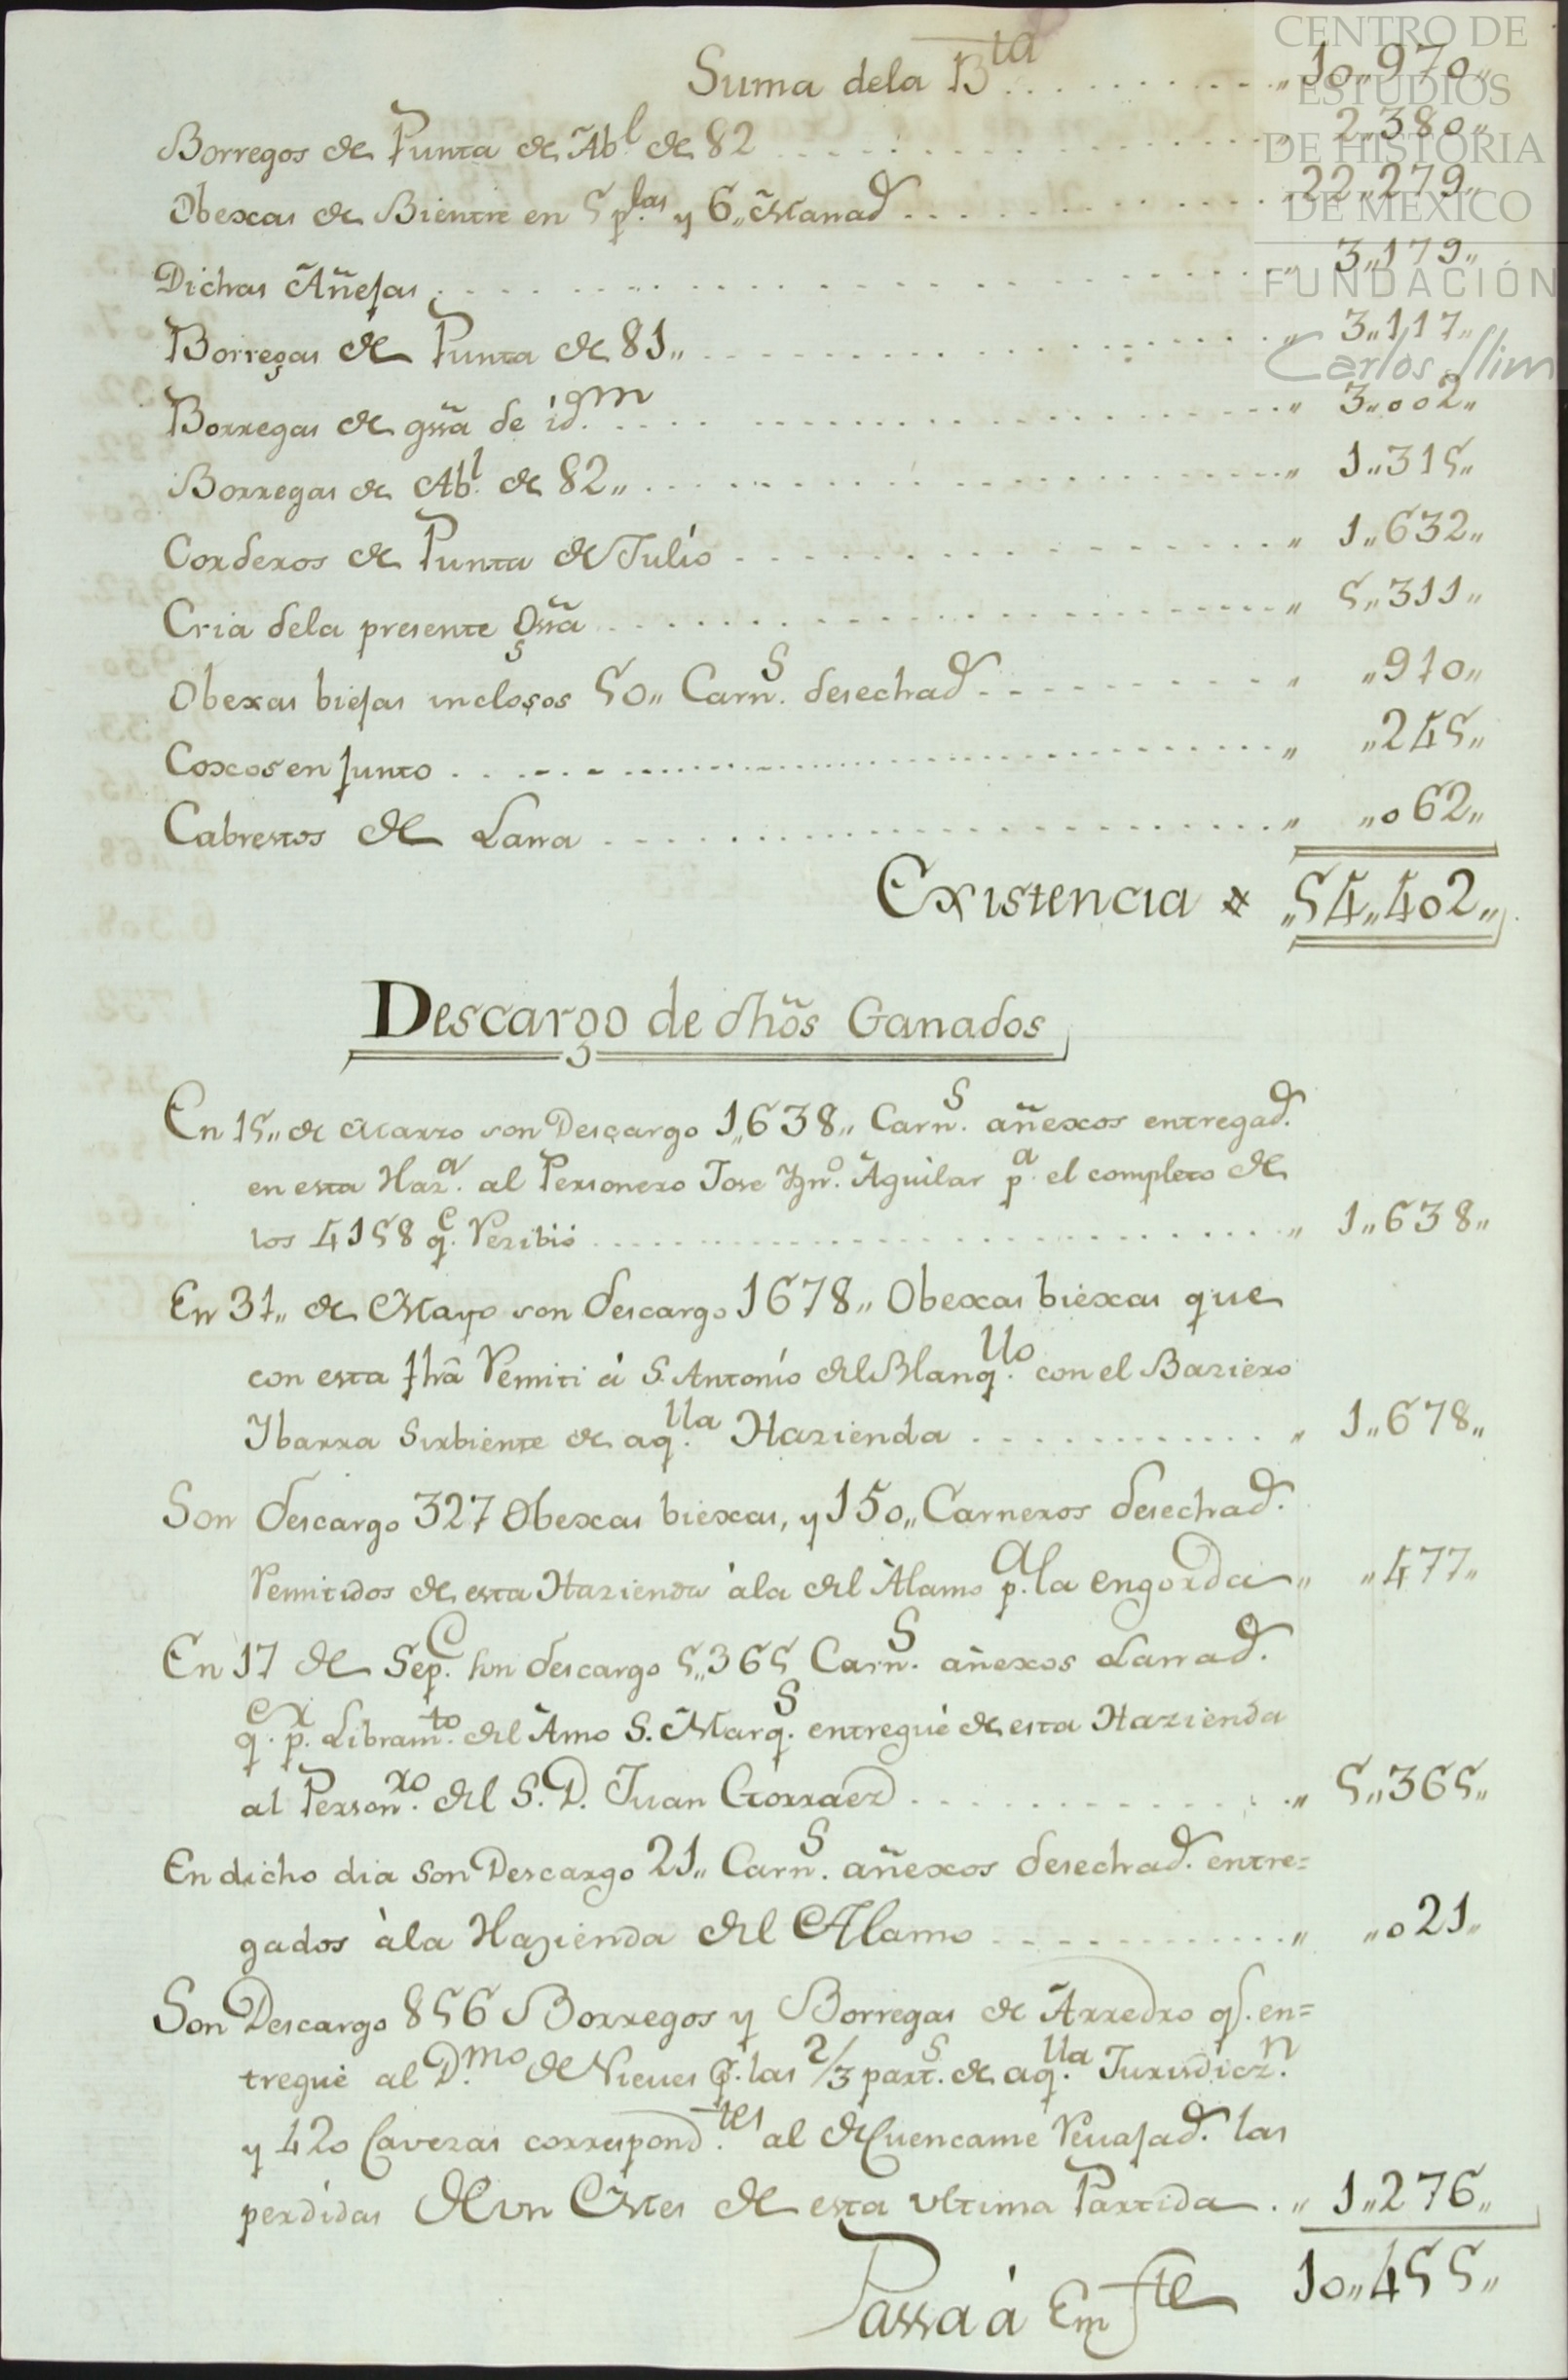 CENTRO DE
ESTUDIOS
DE HISTORIA
DE MEXICO
FUNDACIÓN
Carlos Slim
Suma dela B.ta . . . „10„970„
Borregos de Punta de Ab.l de 82 . . . „ 2„380„
Obexas de Bientre en 5 p.las y 6„ Manad.s . . . „22„279„
Dichas Añejas . . . „ 3„179„
Borregas de Punta de 81„ . . . „ 3„117„
Borregas de gŝsa de id.m . . . „ 3„002„
Borregas de Ab.l de 82„ . . . „ 1„315„
Corderos de Punta de Julio . . . „ 1„632„
Cria dela presente . . . „ 5„311„
Obexas biejas inclosos 50„ Carn.s desechad.s . . . „ „910„
Coxos en Junto . . . „ „245„
Cabrestos de Lana . . . „ „062„
Existencia „54„402„
Descargo de dhõs Ganados
En 15„ de Marzo son Descargo 1„638„ Carn.s añexos entregad.s
en esta Haz.a al Personero Jose Ygn.o Aguilar p.a el completo de
los 4158 q.e Rezibió . . . „ 1„638„
En 31„ de Mayo son descargo 1678„ Obexas biexas que
con esta fhã Remiti á S. Antonio del Blanq.llo con el Baziero
Ybarra Sirbiente de aq.lla Hazienda . . . „ 1„678„
Son descargo 327 Obexas biexas, y 150„ Carneros desechad.s
Remitidos de esta Hazienda àla del Alamo p.a la engorda „ „477„
En 17 de Sep.e son descargo 5„365 Carn.s añexos Lanad.s
q.e p.r Libram.to del Amo S. Marq.s entregué de esta Hazienda
al Person.ro del S. D. Juan Gorraez . . . „ 5„365„
En dicho dia son Descargo 21„ Carn.s añexos desechad.s entre=
gados àla Hazienda del Alamo . . . „ „021„
Son Descargo 856 Borregos y Borregas de Arredro q.e en=
tregué al D.mo de Nieves p.r las 2/3 part.s de aq.lla Jurisdicz.n
y 420 Cavezas correspond.tes al de Cuencame Revajad.s las
perdidas de un Mes de esta ultima Partida . „ 1„276„
Passa á Emf.te 10„455„